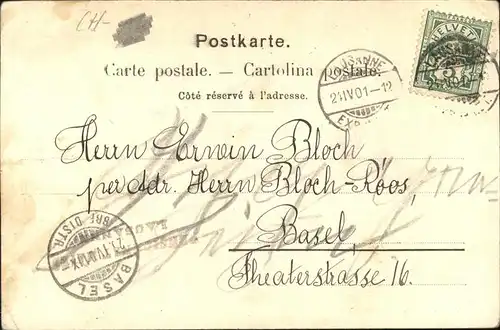 CH-
Postkarte.
Carte postale. — Cartolina postale.
Côté réservé à l'adresse.
HELVETIA
LAUSANNE
21 IV 01 - 12
Herrn Erwin Bloch
per Adr. Herrn Bloch-Roos,
Basel,
Theaterstrasse 16.
BASEL
21. IV. 01. IX
BRF. DISTR.
LAUSANNE